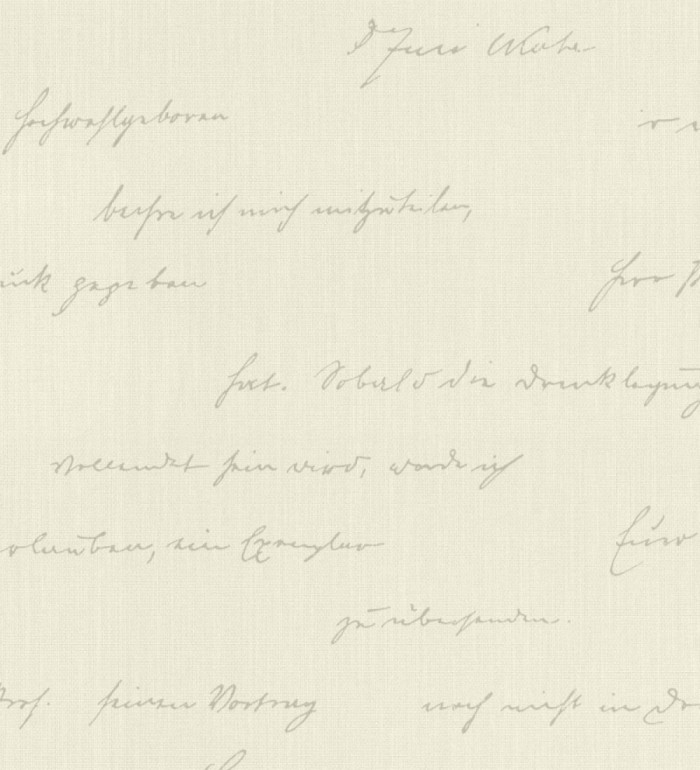 Hochwohlgeboren
beehre ich mich mitzuteilen,
gegeben Herr
hat. Sobald die Drucklegung
vollendet sein wird, werde ich
erlauben, ein Exemplar Euer
zu übersenden.
Prof. seinen Vortrag noch nicht in